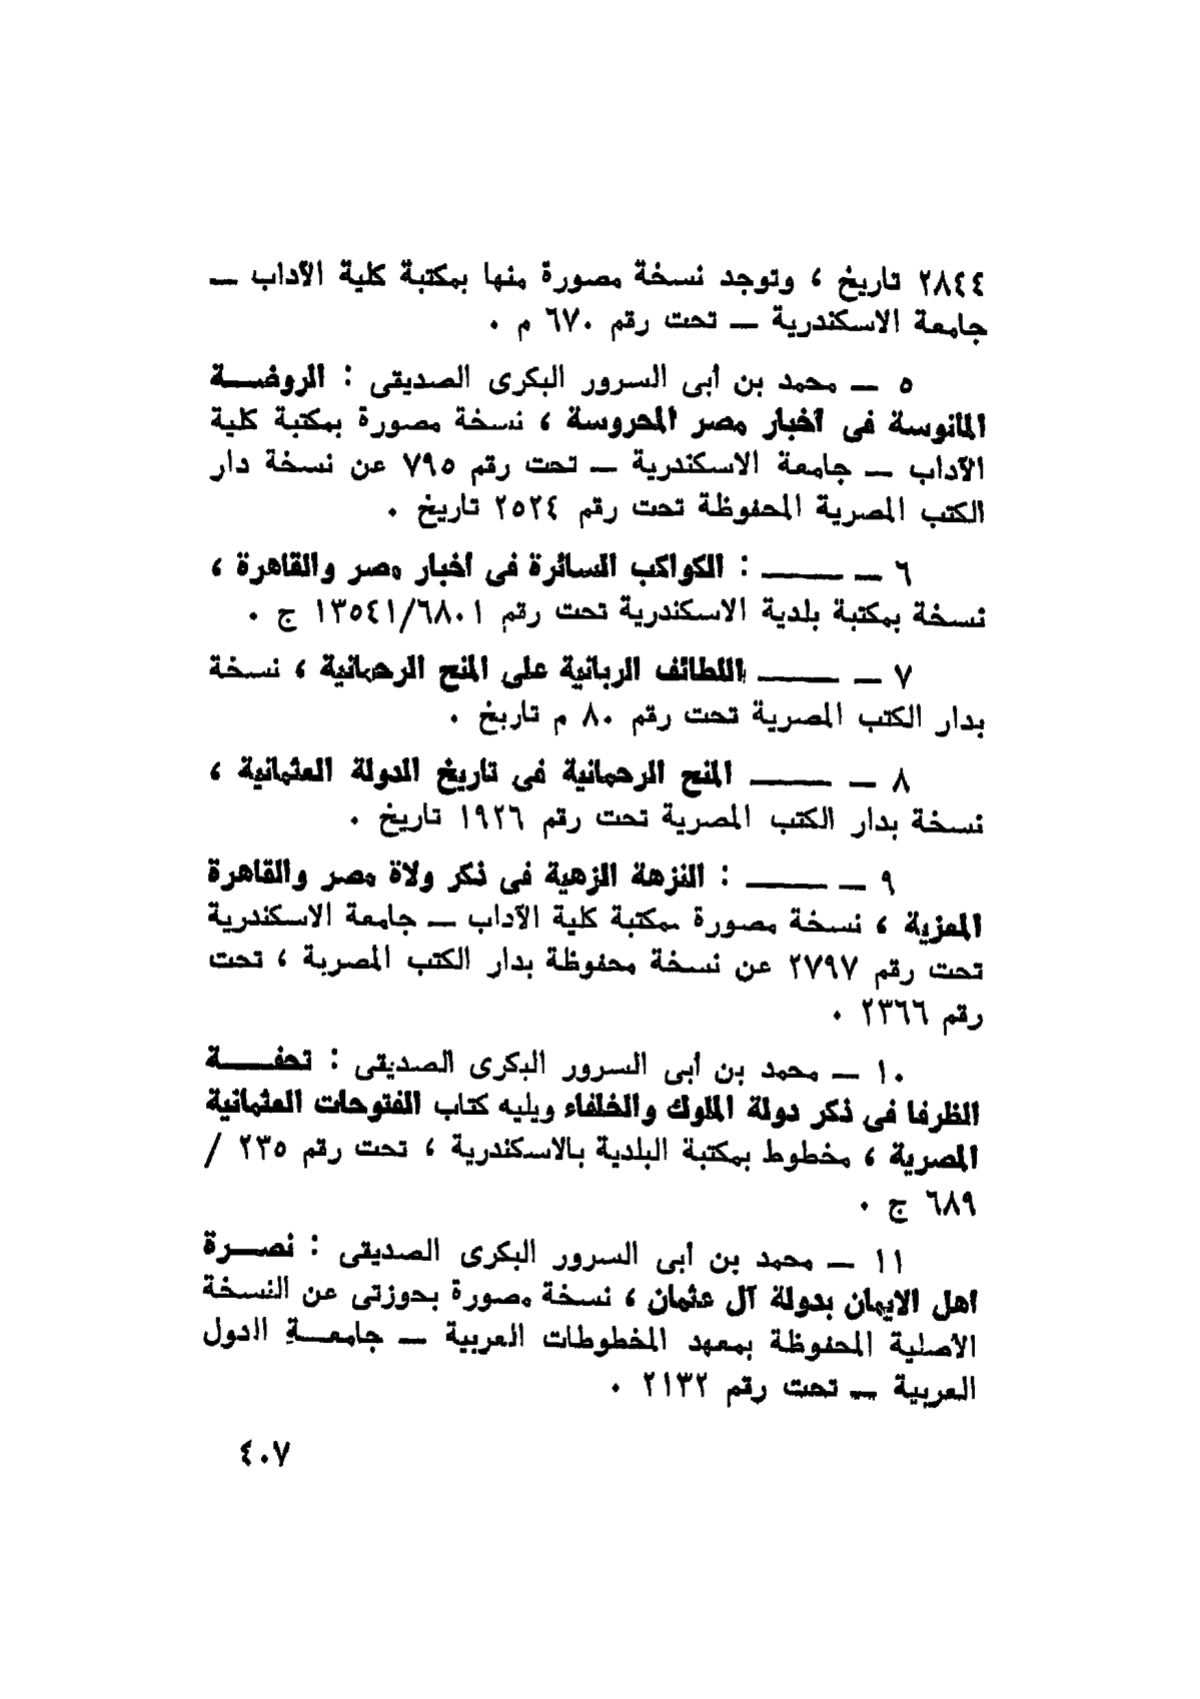 ٢٨٤٤ تاريخ ، وتوجد نسخة مصورة منها بمكتبة كلية الآداب —
جامعة الاسكندرية — تحت رقم ٦٧٠ م .
٥ — محمد بن أبى السرور البكرى الصديقى : الروضــة
المانوسة فى أخبار مصر المحروسة ، نسخة مصورة بمكتبة كلية
الآداب — جامعة الاسكندرية — تحت رقم ٧٩٥ عن نسخة دار
الكتب المصرية المحفوظة تحت رقم ٢٥٢٤ تاريخ .
٦ — ——— : الكواكب السائرة فى أخبار مصر والقاهرة ،
نسخة بمكتبة بلدية الاسكندرية تحت رقم ١٣٥٤١/٦٨٠١ ج .
٧ — ——— اللطائف الربانية على المنح الرحمانية ، نسخة
بدار الكتب المصرية تحت رقم ٨٠ م تاريخ .
٨ — ——— المنح الرحمانية فى تاريخ الدولة العثمانية ،
نسخة بدار الكتب المصرية تحت رقم ١٩٢٦ تاريخ .
٩ — ——— : النزهة الزهية فى ذكر ولاة مصر والقاهرة
المعزية ، نسخة مصورة بمكتبة كلية الآداب — جامعة الاسكندرية
تحت رقم ٢٧٩٧ عن نسخة محفوظة بدار الكتب المصرية ، تحت
رقم ٢٣٦٦ .
١٠ — محمد بن أبى السرور البكرى الصديقى : تحفــة
الظرفا فى ذكر دولة الملوك والخلفاء ويليه كتاب الفتوحات العثمانية
المصرية ، مخطوط بمكتبة البلدية بالاسكندرية ، تحت رقم ٢٣٥ /
٦٨٩ ج .
١١ — محمد بن أبى السرور البكرى الصديقى : نصــرة
أهل الايمان بدولة آل عثمان ، نسخة مصورة بحوزتى عن النسخة
الأصلية المحفوظة بمعهد المخطوطات العربية — جامعــة الدول
العربية — تحت رقم ٢١٣٢ .
٤٠٧